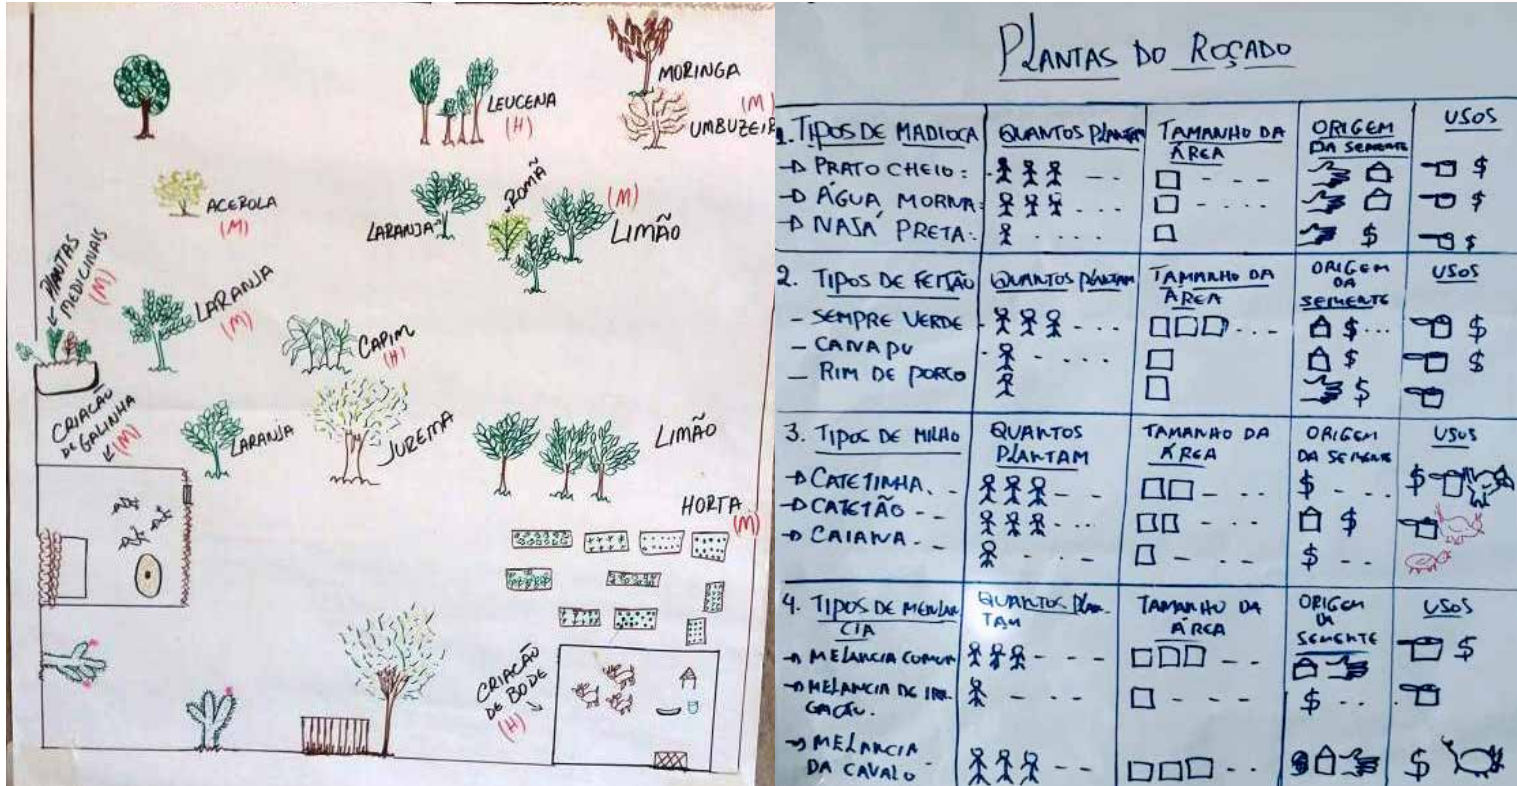 MORINGA
(M)
UMBUZEIR
LEUCENA
(H)
ROMÃ
ACEROLA
(M)
LARANJA
(M)
LIMÃO
PLANTAS
MEDICINAIS
(M)
LARANJA
(M)
CAPIM
(H)
CRIAÇÃO
DE GALINHA
(M)
LARANJA
JUREMA
LIMÃO
HORTA
(M)
CRIAÇÃO
DE BODE
(H)
PLANTAS DO ROÇADO
1. TIPOS DE MADIOCA QUANTOS PLANTAM TAMANHO DA ÁREA ORIGEM DA SEMENTE USOS
→ PRATO CHEIO: $
→ ÁGUA MORNA: $
→ NAJÁ PRETA: $ $
2. TIPOS DE FEIJÃO QUANTOS PLANTAM TAMANHO DA ÁREA ORIGEM DA SEMENTE USOS
- SEMPRE VERDE $ $
- CANAPU $ $
- RIM DE PORCO $
3. TIPOS DE MILHO QUANTOS PLANTAM TAMANHO DA ÁREA ORIGEM DA SEMENTE USOS
→ CATETINHA $ $
→ CATETÃO $
→ CAIANA $
4. TIPOS DE MELANCIA QUANTOS PLANTAM TAMANHO DA ÁREA ORIGEM DA SEMENTE USOS
→ MELANCIA COMUM $
→ MELANCIA DE IRRIGAÇÃO. $
→ MELANCIA DA CAVALO $ $